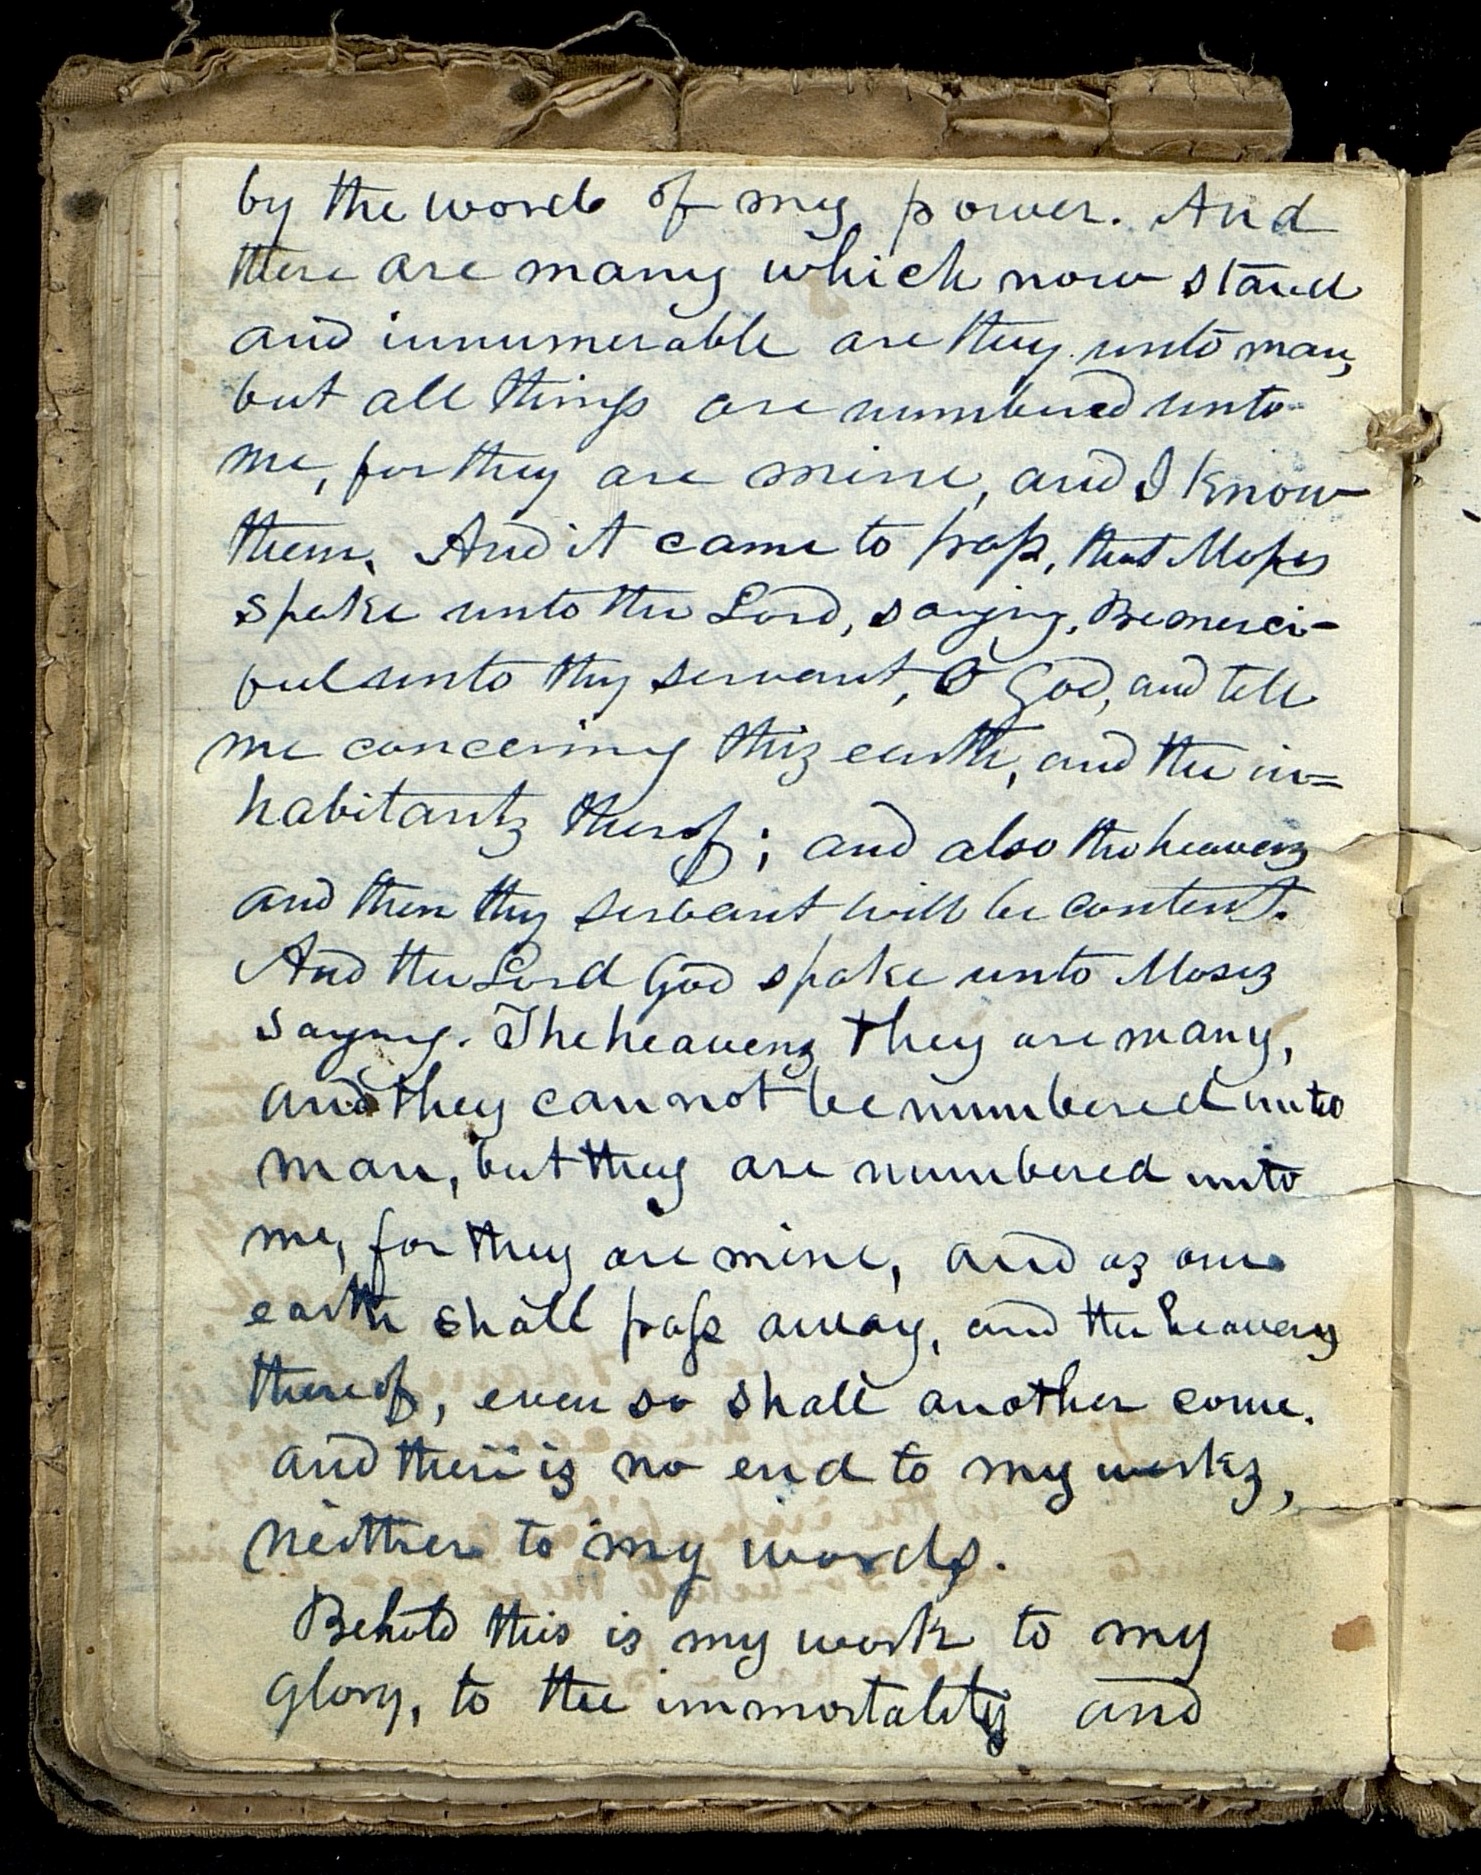 by the word of my power. And
there are many which now stand
and innumerable are they unto man,
but all things are numbered unto
me, for they are mine, and I know
them. And it came to pass, that Moses
spake unto the Lord, saying, Be merci-
ful unto thy servant, O God, and tell
me concerning this earth, and the in=
habitants therof; and also the heavens
and then thy servant will be content.
And the Lord God spake unto Moses
saying. The heavens they are many,
and they can not be numbered unto
man, but they are numbered unto
me, for they are mine, and as one
earth shall pass away, and the heavens
thereof, even so shall another come.
and there is no end to my works,
neither to my words.
Behold this is my work to my
glory, to the immortality and